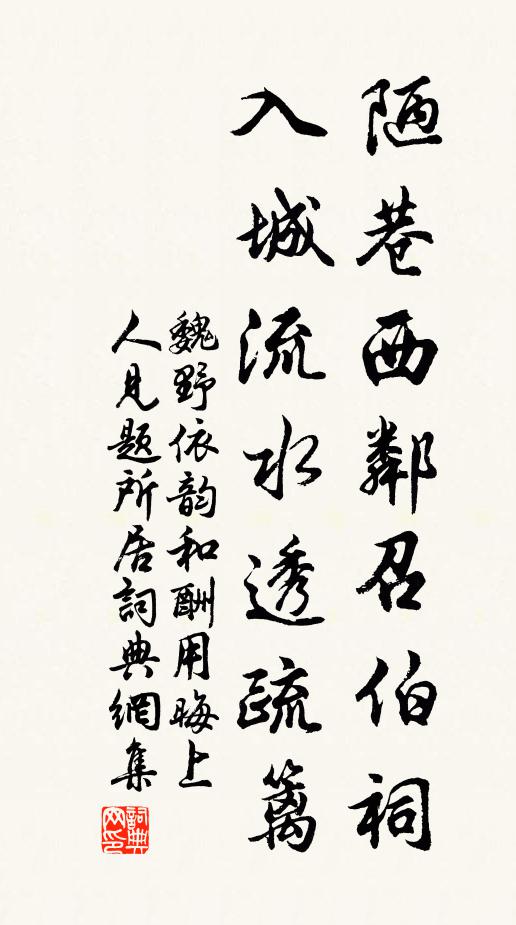 陋巷西鄰召伯祠
入城流水透疏篱
魏野依韵和酬用晦上
人見题所居詞典網集